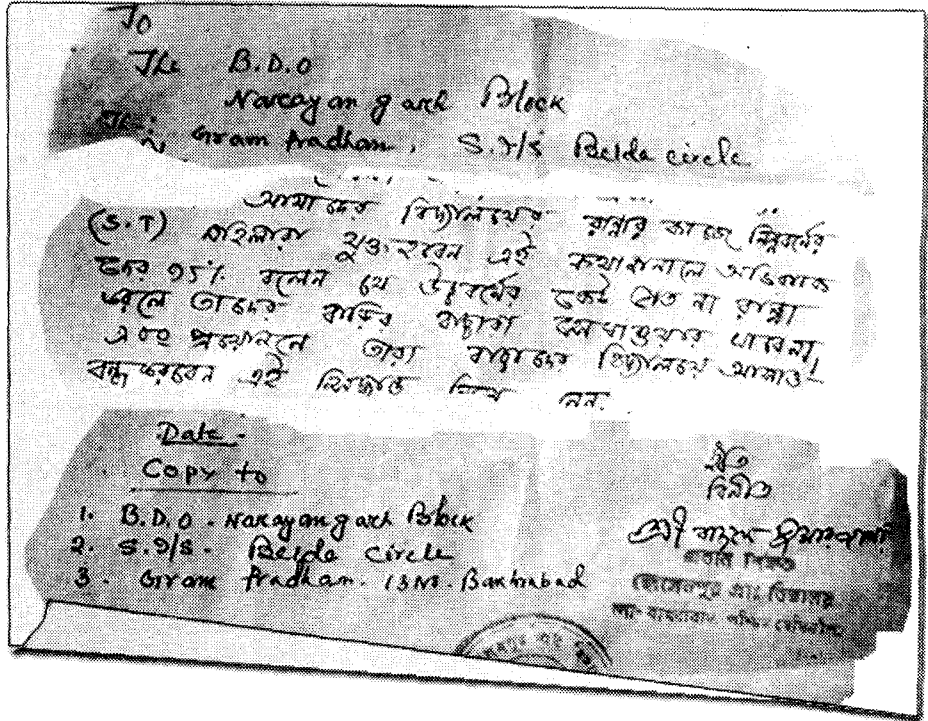 To
The B.D.O
Narayangarh Block
Gram Pradhan, S.I/S Belda circle
আমাদের বিদ্যালয়ের রান্নার কাজে নিম্নবর্ণের
(S.T) মহিলারা যুক্ত হবেন এই কথা শুনলে অভিভাবক
দের ৭৫% বলেন যে উচ্চবর্ণের কেউ না রান্না
করলে তাদের বাড়ির বাচ্চারা খাবেনা,
এবং প্রয়োজনে তারা বাচ্চাদের বিদ্যালয়ে আসাও
বন্ধ করবেন এই সিদ্ধান্ত নেন.
Date -
Copy to
1. B.D.O - Narayangarh Block
2. S.I/S - Belda circle
3. Gram Pradhan. 13 No. Bakhrabad
ইতি
বিনীত
শ্রী
প্রধান শিক্ষক